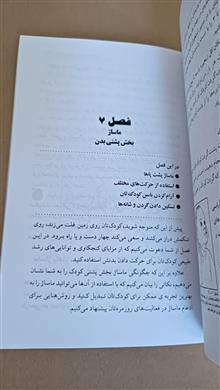 فصل ۷
ماساژ
بخش پشتی بدن
در این فصل
● ماساژ پشت پاها
● استفاده از حرکت‌های مختلف
● آرام کردن باسن کودک‌تان
● تسکین دادن گردن و شانه‌ها
پیش از این که متوجه شوید، کودک‌تان روی زمین غلت می‌زند، روی
شکمش دراز می‌کشد و سعی می‌کند چهار دست و پا راه برود. در این
فصل از شما دعوت می‌کنیم که از مزایای کنجکاوی و توانایی‌های رشد
طبیعی کودک‌تان برای حرکت دادن بدنش استفاده کنید.
علاوه بر این که چگونگی ماساژ بخش پشتی کودک را به شما نشان
می‌دهیم، نکاتی را بیان می‌کنیم که با استفاده از آن‌ها می‌توانید ماساژ را به
بهترین تجربه‌ی ممکن برای کودک‌تان تبدیل کنید و روش‌هایی برای
ادغام ماساژ در فعالیت‌های روزمره‌تان پیشنهاد می‌کنیم.